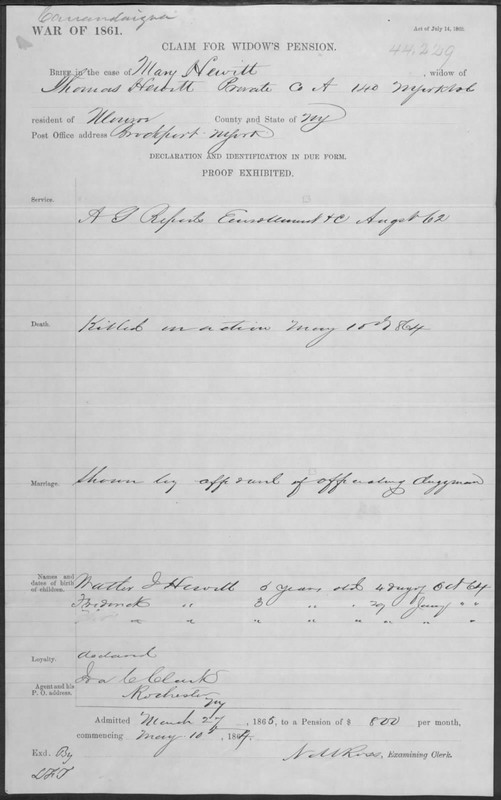 Canandaigua
WAR OF 1861.
Act of July 14, 1862.
CLAIM FOR WIDOW'S PENSION.
44,229
BRIEF in the case of Mary Hewitt, widow of
Thomas Hewitt Private Co A 140 N York Vols
resident of Monroe County and State of NY
Post Office address Brockport N York
DECLARATION AND IDENTIFICATION IN DUE FORM.
PROOF EXHIBITED.
Service.
A G Reports Enrollment &c August 62
Death.
Killed in action May 10th 1864
Marriage.
Shown by affidavit of officiating clergyman
Names and dates of birth of children.
Walter J Hewitt 5 years old 4 day of Oct 64
Frederick " 3 " " 29 " "
" " " " " " " "
Loyalty.
declared
Agent and his P. O. address,
Ira C Clark
Rochester
NY
Admitted March 27, 1865, to a Pension of $ 8.00 per month,
commencing May 10th, 1864.
Exd. By
, Examining Clerk.